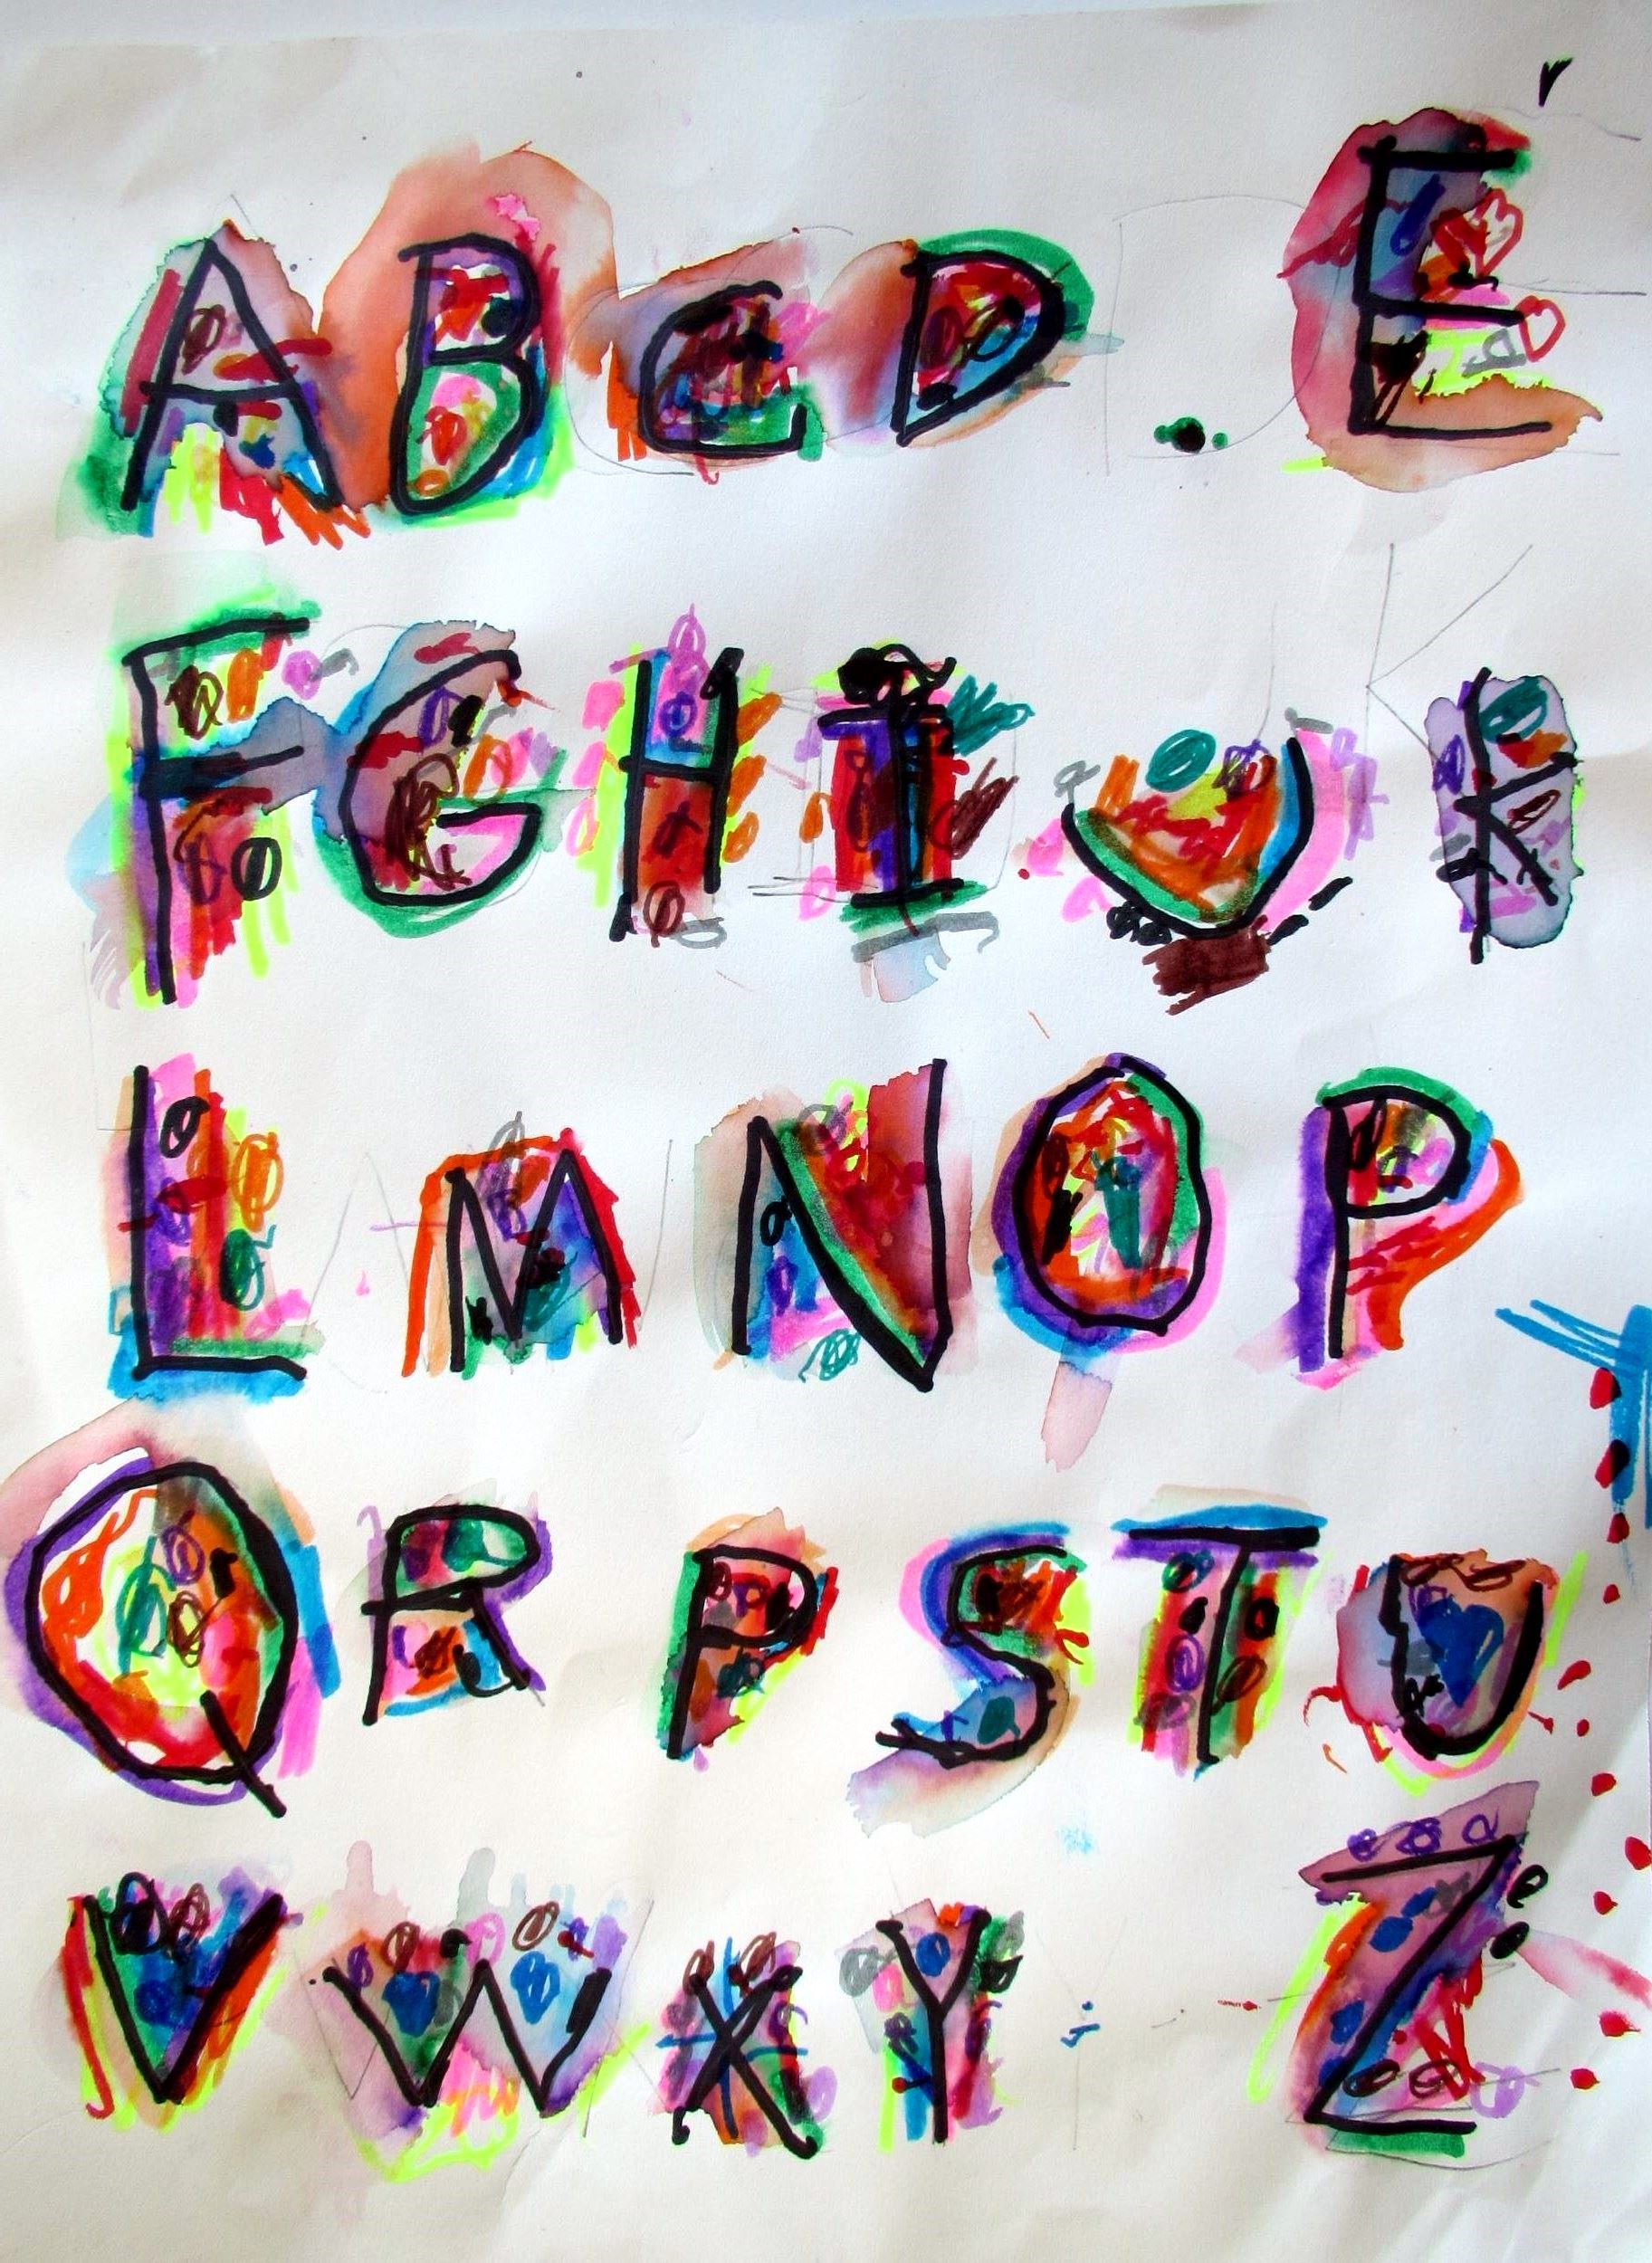 A B C D E
F G H I J K
L M N O P
Q R P S T U
V W X Y Z